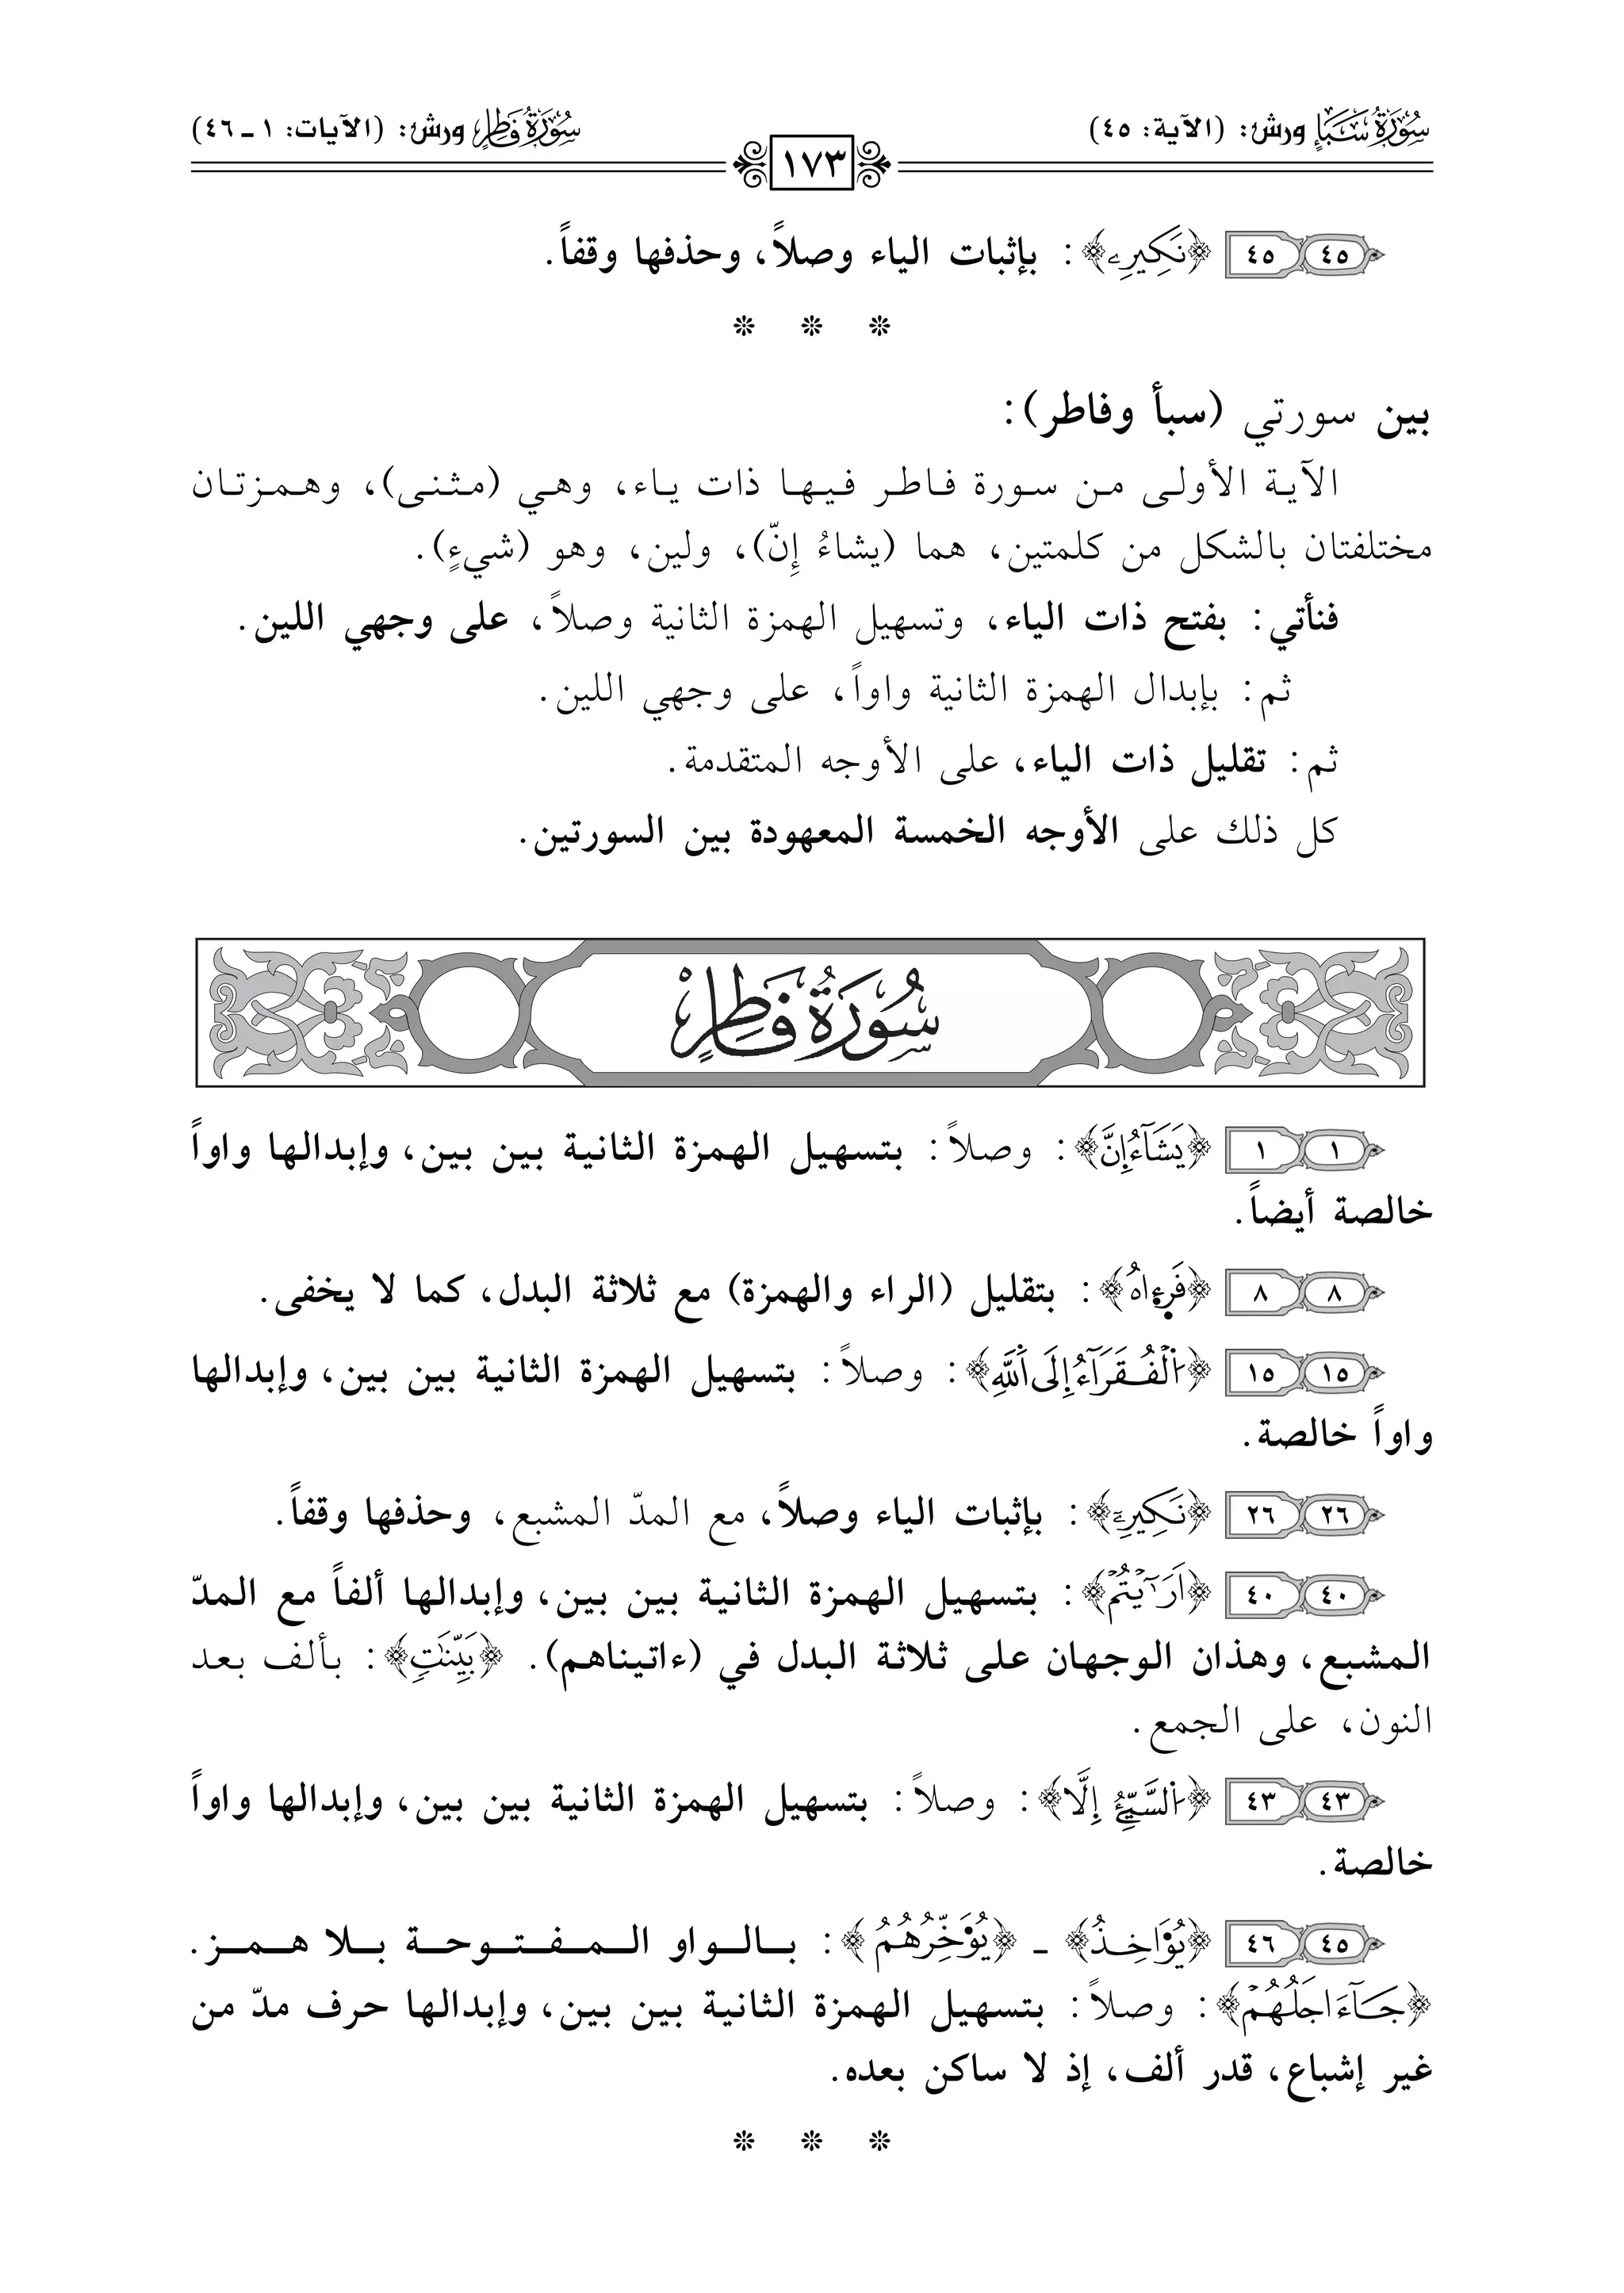 سُورَةُ سَبَإٍ ورش: (الآية: ٤٥)
١٧٣
سُورَةُ فَاطِرٍ ورش: (الآيات: ١ ـ ٤٦)
٤٥ ٤٥ ﴿نَكِيرِۦ﴾: بإثبات الياء وصلاً، وحذفها وقفاً.
* * *
بين سورتي (سبأ وفاطر):
الآية الأولى من سورة فاطر فيها ذات ياء، وهي (مثنى)، وهمزتان
مختلفتان بالشكل من كلمتين، هما (يشاءُ إِنّ)، ولين، وهو (شيءٍ).
فنأتي: بفتح ذات الياء، وتسهيل الهمزة الثانية وصلاً، على وجهي اللين.
ثم: بإبدال الهمزة الثانية واواً، على وجهي اللين.
ثم: تقليل ذات الياء، على الأوجه المتقدمة.
كل ذلك على الأوجه الخمسة المعهودة بين السورتين.
سُورَةُ فَاطِرٍ
١ ١ ﴿يَشَآءُ اِنَّ﴾: وصلاً: بتسهيل الهمزة الثانية بين بين، وإبدالها واواً
خالصة أيضاً.
٨ ٨ ﴿فَرِءاهُ﴾: بتقليل (الراء والهمزة) مع ثلاثة البدل، كما لا يخفى.
١٥ ١٥ ﴿اُ۬لْفُقَرَآءُ إِلَى اَ۬للَّهِ﴾: وصلاً: بتسهيل الهمزة الثانية بين بين، وإبدالها
واواً خالصة.
٢٦ ٢٦ ﴿نَكِيرِۦٓ﴾: بإثبات الياء وصلاً، مع المدّ المشبع، وحذفها وقفاً.
٤٠ ٤٠ ﴿اَرَٰٓيْتُمْ﴾: بتسهيل الهمزة الثانية بين بين، وإبدالها ألفاً مع المدّ
المشبع، وهذان الوجهان على ثلاثة البدل في (ءاتيناهم). ﴿بَيِّنَٰتٖ﴾: بألف بعد
النون، على الجمع.
٤٣ ٤٣ ﴿اُ۬لسَّيِّئُ إِلَّا﴾: وصلاً: بتسهيل الهمزة الثانية بين بين، وإبدالها واواً
خالصة.
٤٥ ٤٦ ﴿يُوَاخِذُ﴾ ـ ﴿يُوَخِّرُهُمُ﴾: بالواو المفتوحة بلا همز.
﴿جَآءَ اجَلُهُمْ﴾: وصلاً: بتسهيل الهمزة الثانية بين بين، وإبدالها حرف مدّ من
غير إشباع، قدر ألف، إذ لا ساكن بعده.
* * *